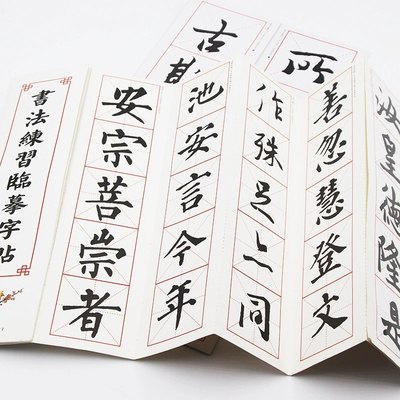 書法練習臨摹字帖
安宗菩崇者
池安言今年
作殊足上同
善忽慧登文
皇德隆是
古
所